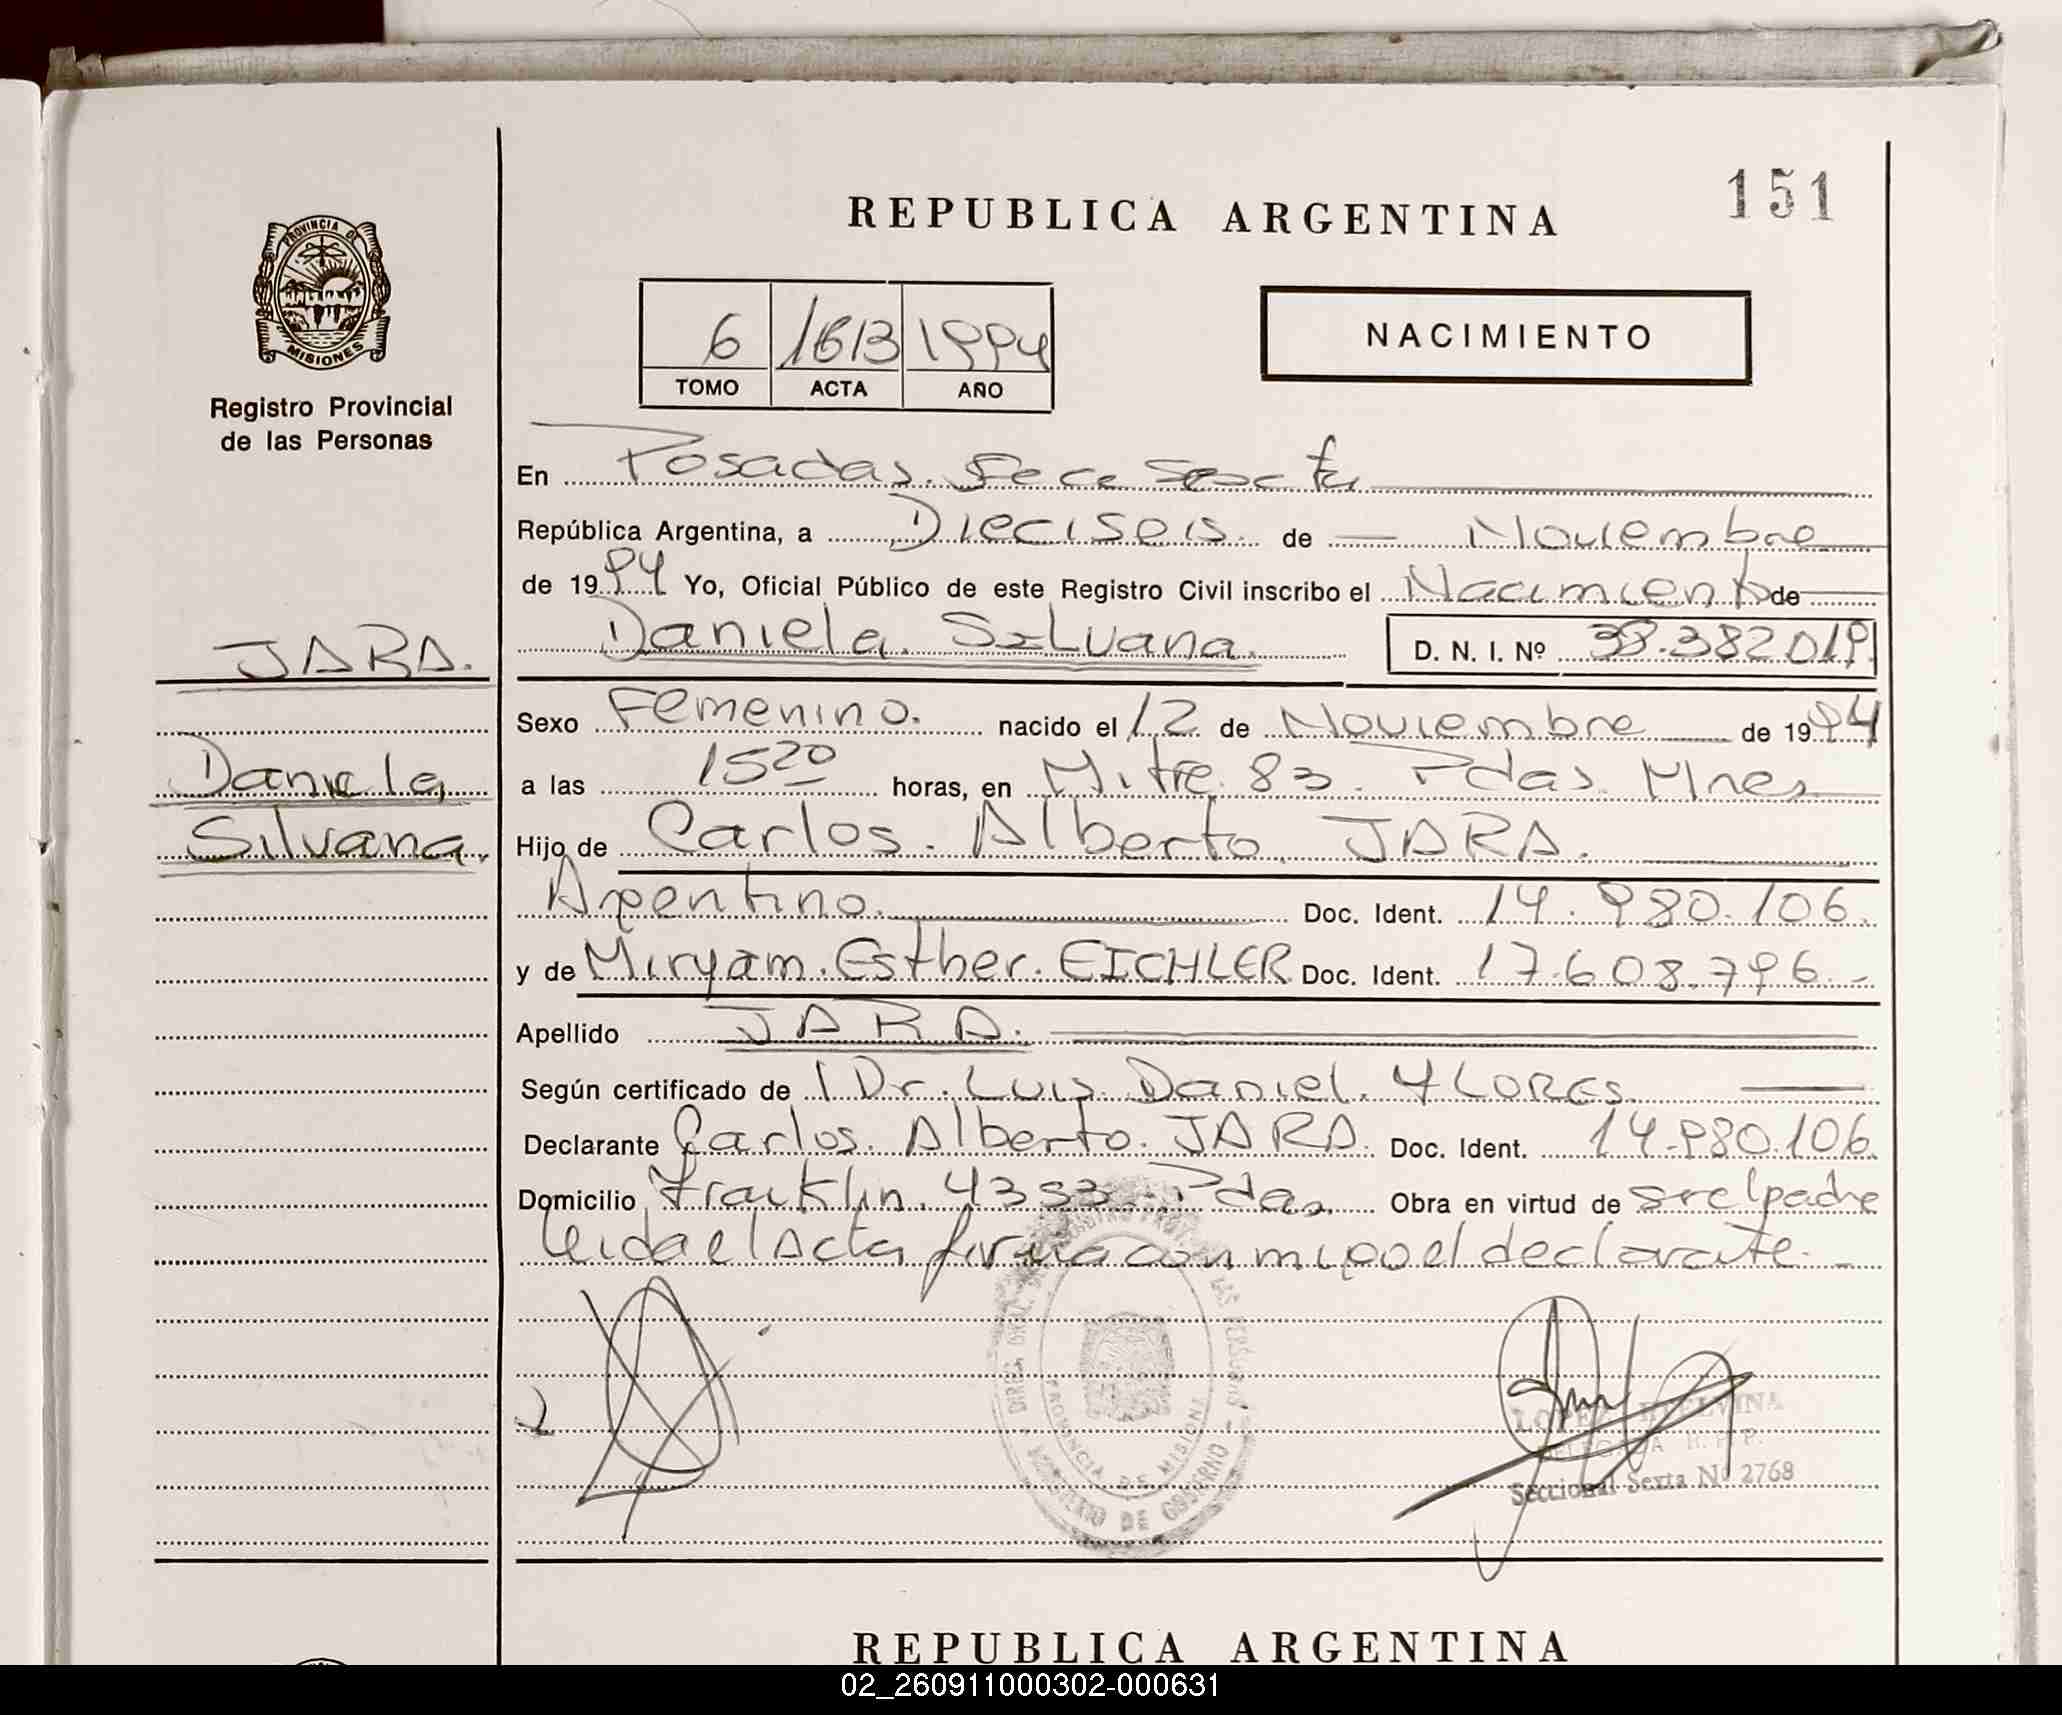 151
REPUBLICA ARGENTINA
PROVINCIA DE
MISIONES
Registro Provincial
de las Personas
6 1613 1994
TOMO ACTA AÑO
NACIMIENTO
En Posadas. Secc Sexta
República Argentina, a Dieciseis de Noviembre
de 1994 Yo, Oficial Público de este Registro Civil inscribo el Nacimiento de
JARA.
Daniela Silvana. D. N. I. Nº 38.382019
Sexo Femenino. nacido el 12 de Noviembre de 1994
Daniela
a las 15 20 horas, en Mitre 83. Pdas. Mnes
Silvana.
Hijo de Carlos. Alberto JARA.
Argentino. Doc. Ident. 14.980.106.
y de Miryam. Esther. EICHLER Doc. Ident. 17.608.796.-
Apellido JARA.
Según certificado de l Dr. Luis Daniel. FLORES.
Declarante Carlos. Alberto. JARA. Doc. Ident. 14.980.106.
Domicilio Franklin. 4353. Pdas. Obra en virtud de ser el padre
leida el Acta firma conmigo el declarante.-
PROVINCIA DE MISIONES
MINISTERIO DE GOBIERNO
LOPEZ ELVINA
DELEGADA R. P. P.
Seccional Sexta Nº 2768
REPUBLICA ARGENTINA
02_260911000302-000631